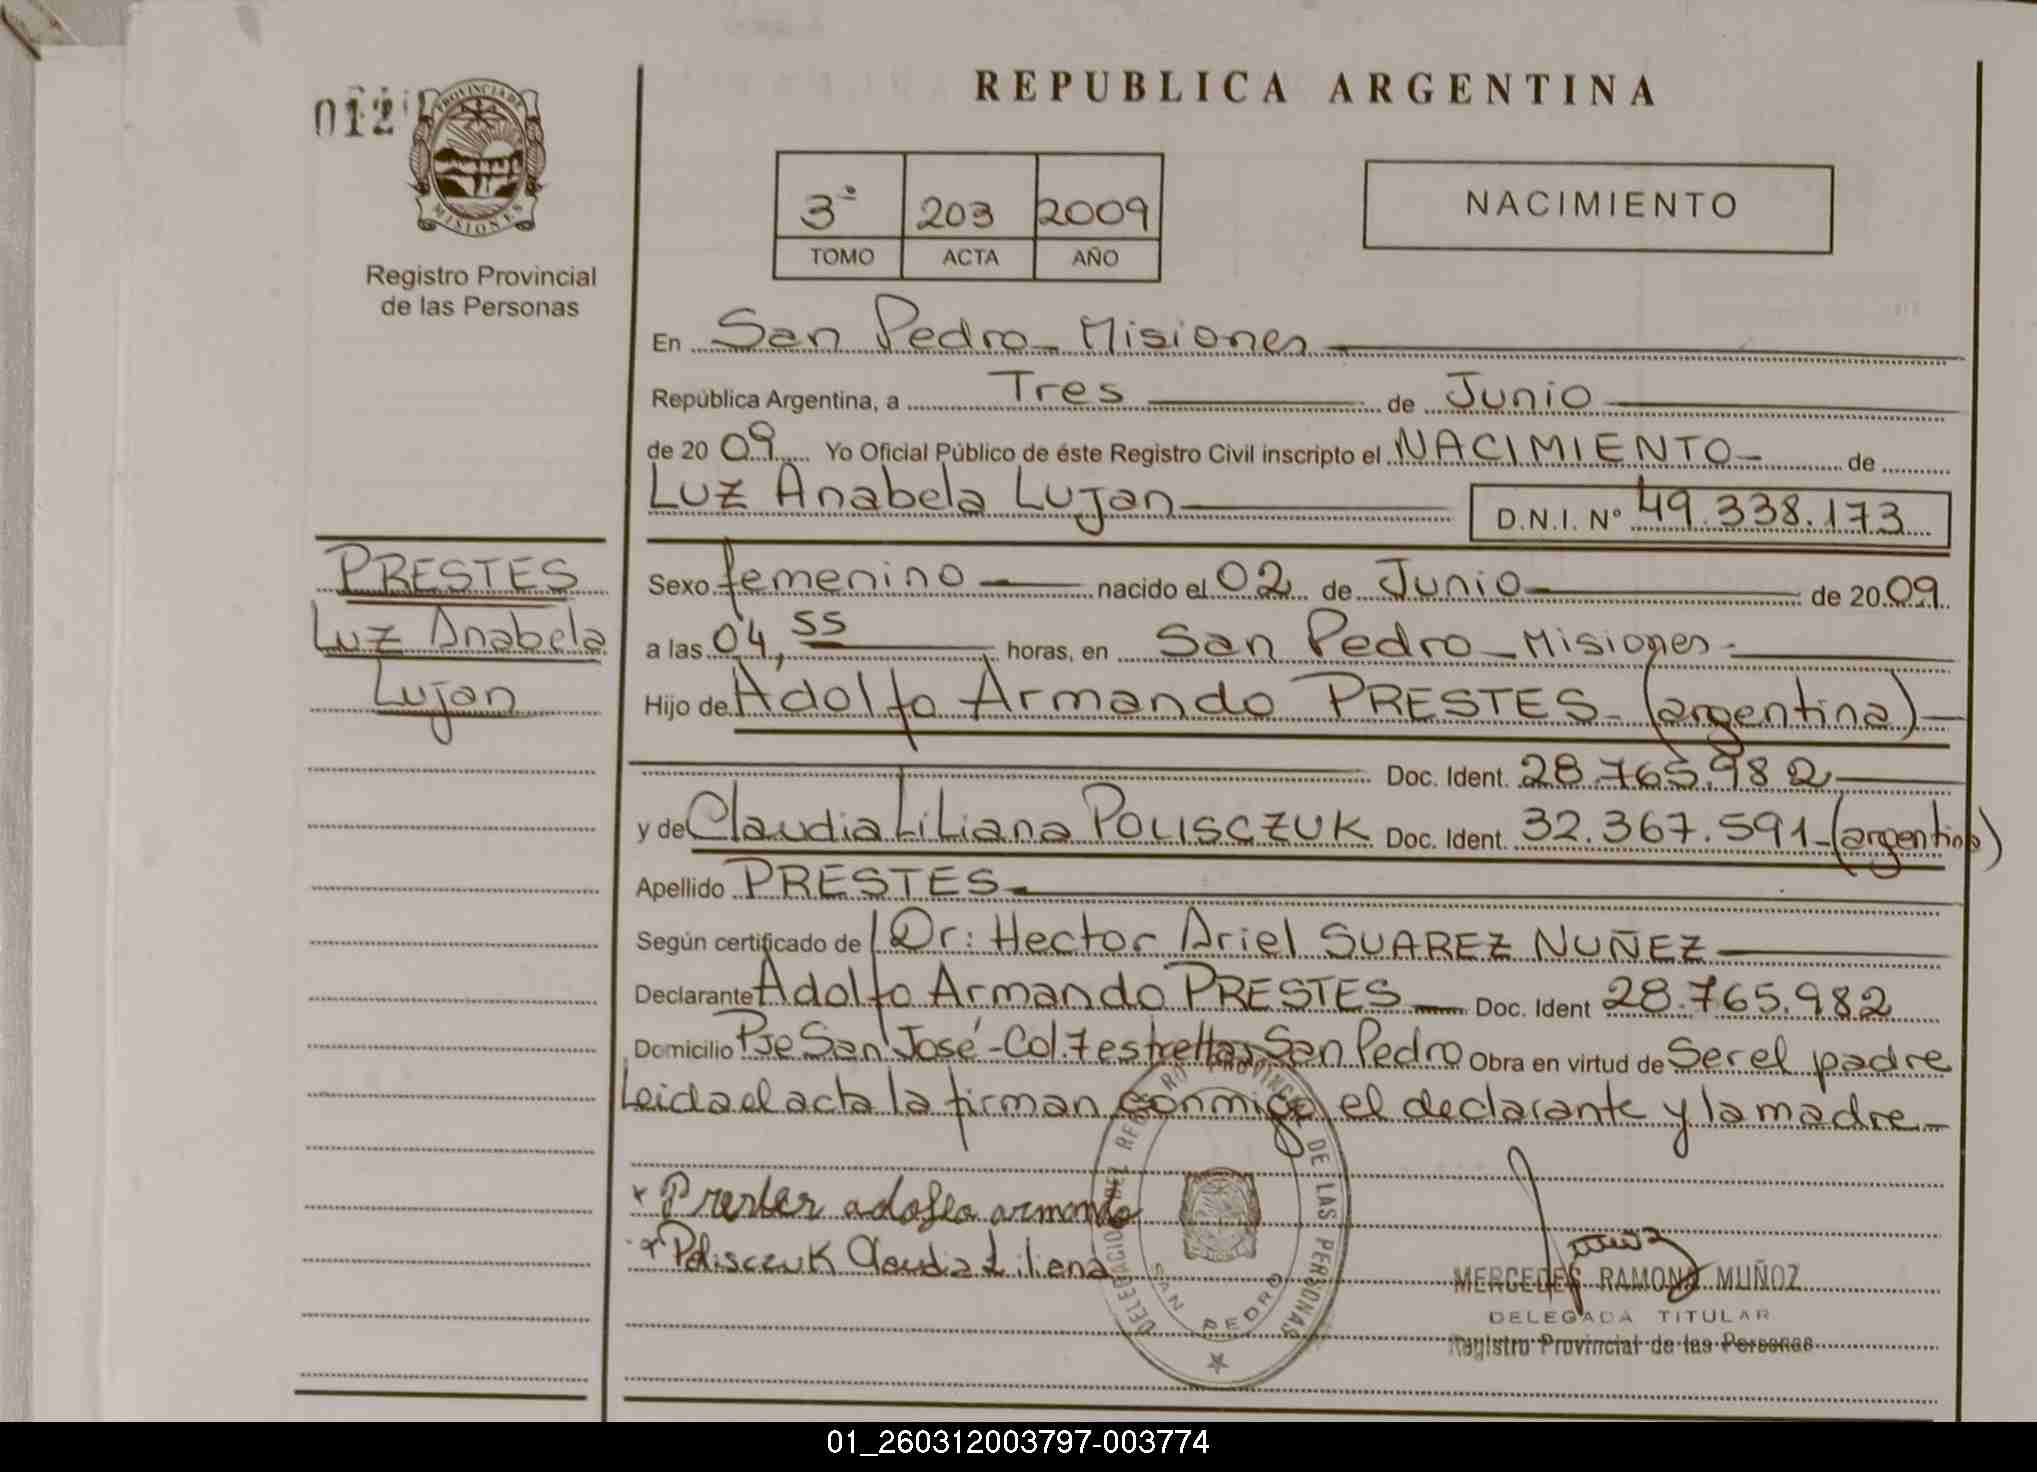 012
PROVINCIA DE
MISIONES
Registro Provincial
de las Personas
REPUBLICA ARGENTINA
3º 203 2009
TOMO ACTA AÑO
NACIMIENTO
En San Pedro - Misiones
República Argentina, a Tres de Junio
de 20 09 Yo Oficial Público de éste Registro Civil inscripto el NACIMIENTO de
Luz Anabela Lujan D.N.I. Nº 49.338.173
PRESTES
Luz Anabela
Lujan
Sexo femenino nacido el 02 de Junio de 20 09
a las 04,55 horas, en San Pedro - Misiones -
Hijo de Adolfo Armando PRESTES - (argentina)
Doc. Ident. 28.765.982
y de Claudia Liliana POLISCZUK Doc. Ident. 32.367.591 - (argentina)
Apellido PRESTES
Según certificado de Dr: Hector Ariel SUAREZ NUÑEZ
Declarante Adolfo Armando PRESTES Doc. Ident 28.765.982
Domicilio Pje San José - Col. 7 estrellas San Pedro Obra en virtud de Ser el padre
Leida el acta la firman conmigo el declarante y la madre -
x Prestes adolfo armando
x Polisczuk Claudia Liliana
DELEGACION DEL REGISTRO PROVINCIAL DE LAS PERSONAS
SAN PEDRO
MERCEDES RAMONA MUÑOZ
DELEGADA TITULAR
Registro Provincial de las Personas
01_260312003797-003774